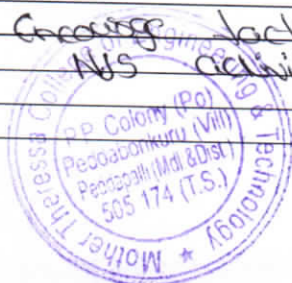 Encourge
NSS
Mother Theressa College of Engineering & Technology
P.P. Colony (Po)
Peddabonkuru (Vill)
Peddapalli (Mdl & Dist)
505 174 (T.S.)